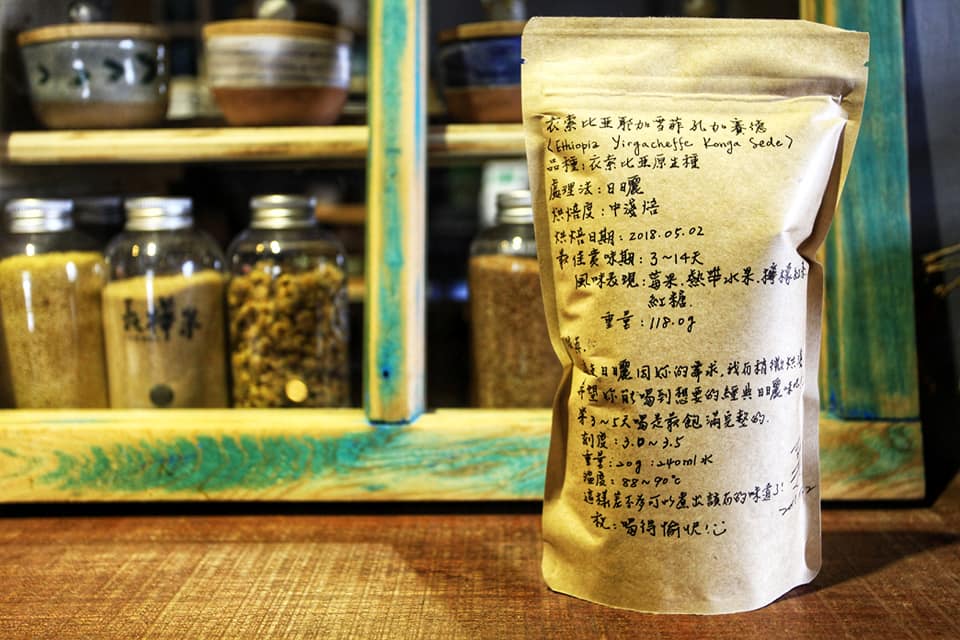 衣索比亞耶加雪菲孔加賽德
(Ethiopia Yirgacheffe Konga Sede)
品種:衣索比亞原生種
處理法:日曬
烘焙度:中淺焙
烘焙日期:2018.05.02
最佳賞味期:3~14天
風味表現:莓果.熱帶水果.檸檬紅茶
紅糖.
重量:118.0g
日曬因妳的尋求,我有稍微
希望妳能喝到想要的經典日曬味
3~5天喝是最飽滿完整的.
刻度:3.0~3.5
重量:20g:240ml水
溫度:88~90℃
這樣差不多可以煮出該有的味道了!
祝:喝得愉快!